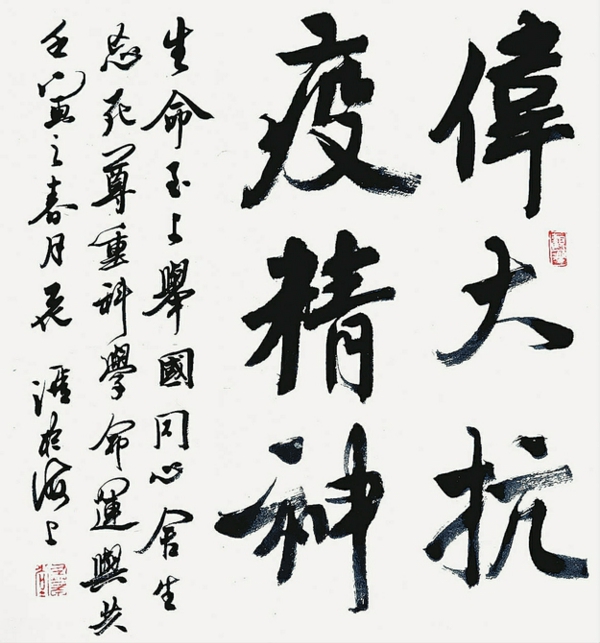 偉大抗
疫精神
生命至上舉國同心舍生
忘死尊重科學命運與共
壬寅之春月
於海上